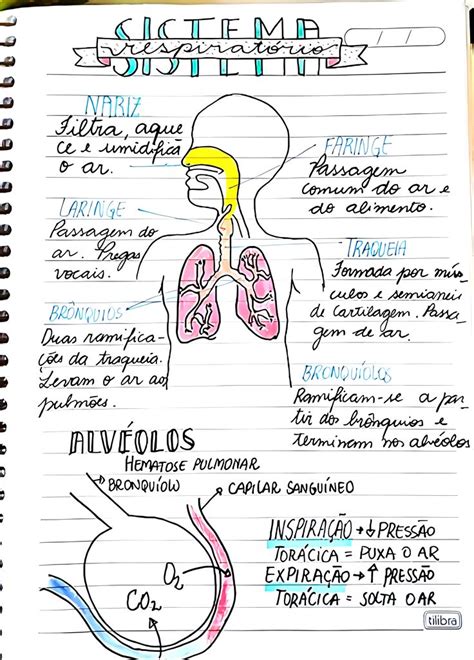 SISTEMA
respiratório
NARIZ
Filtra, aque
ce e umidifica
o ar.
FARINGE
Passagem
comum do ar e
do alimento.
LARINGE
Passagem do
ar. Pregas
vocais.
TRAQUEIA
Formada por mús
culos e semianéis
de cartilagem. Passa
gem de ar.
BRÔNQUIOS
Duas ramifica-
ções da traqueia.
Levam o ar ao
pulmões.
BRONQUÍOLOS
Ramificam-se a par
tir dos brônquios e
terminam nos alvéolos
ALVÉOLOS
HEMATOSE PULMONAR
BRONQUÍOLO
CAPILAR SANGUÍNEO
INSPIRAÇÃO → ↓ PRESSÃO
TORÁCICA = PUXA O AR
EXPIRAÇÃO → ↑ PRESSÃO
TORÁCICA = SOLTA O AR
O2
CO2
tilibra